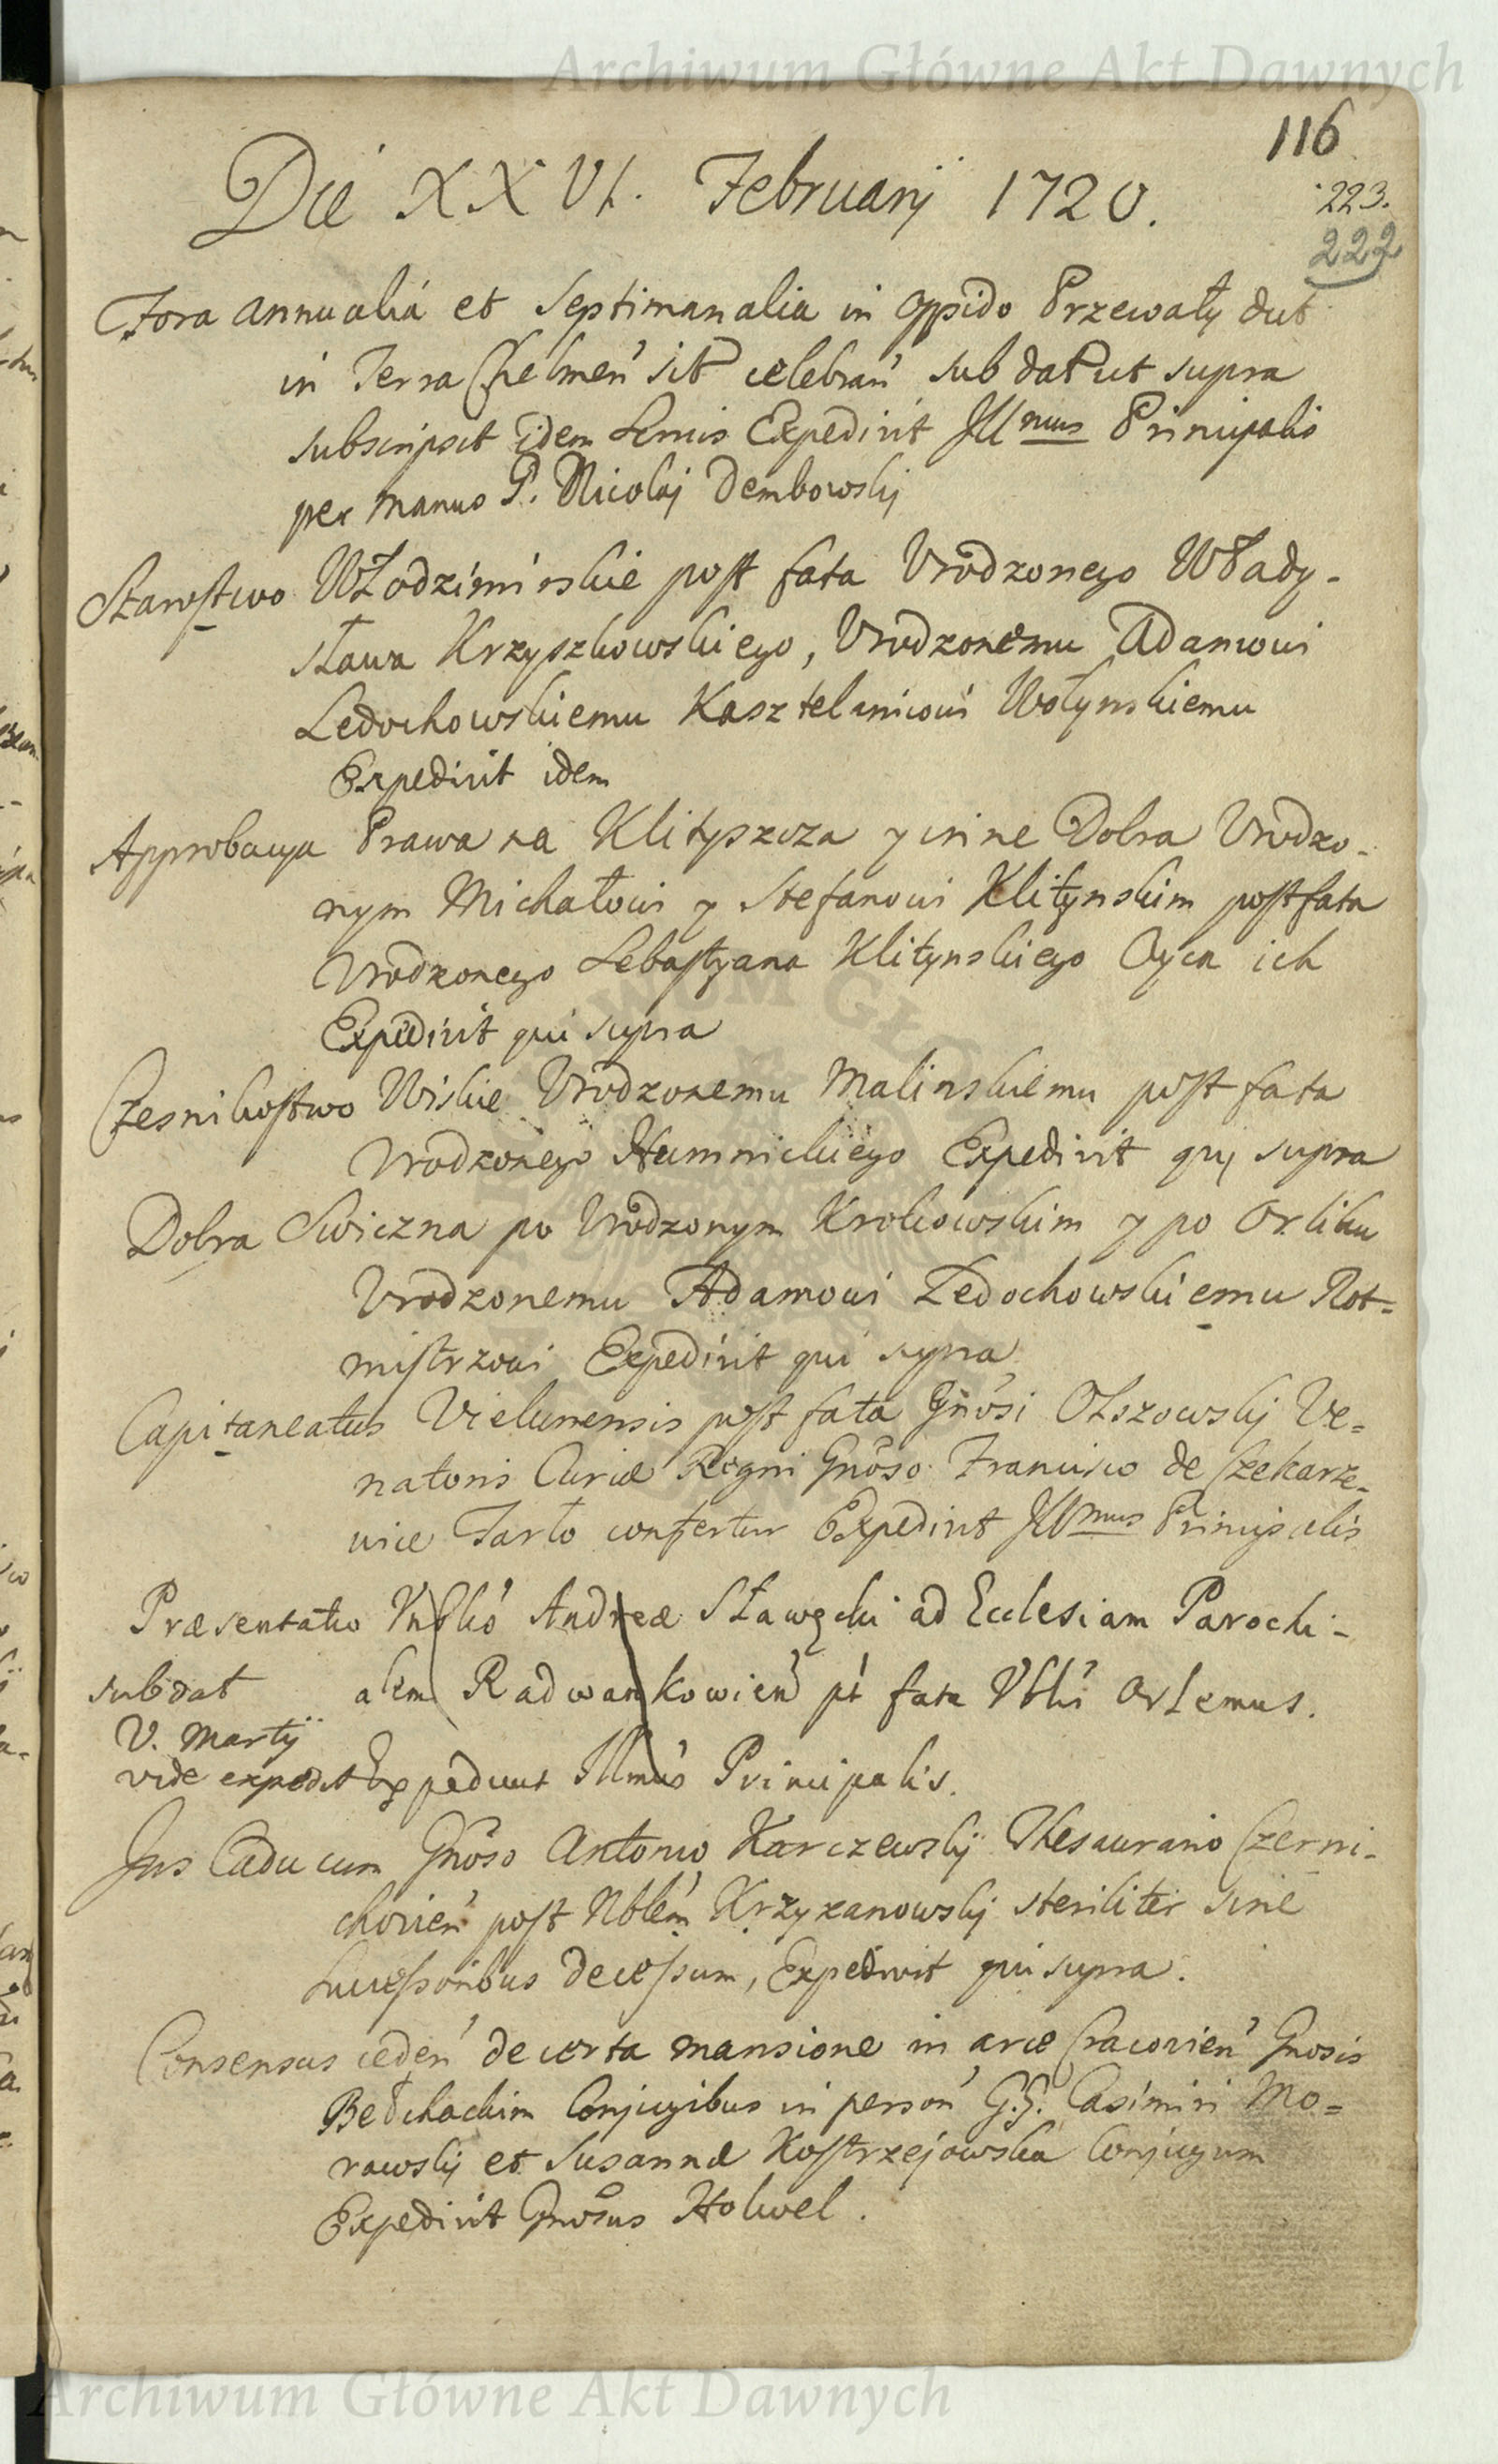 Archiwum Główne Akt Dawnych
116
223.
222
Die XXVI. Februarij 1720.
Fora annualia et Septimanalia in oppido Przewały dut
in Terra Chelmen̄ sit celebran̄ sub dat ut supra
subscripsit idem Sermis Expedivit Jllmus Principalis
per manus P. Nicolaj Dembowskj
Starostwo Włodzimirskie post fata Vrodzonego Włady-
sława Krzyszkowskiego, Vrodzonemu Adamowi
Ledochowskiemu Kasztelanicowi Wołynskiemu
Expedivit idem
Approbacya Prawa na Klityszcza y inne Dobra Vrodzo-
nym Michałowi y Stefanowi Klitynskim post fata
Vrodzonego Sebastyana Klitynskiego Oyca ich
Expedivit qui supra
Czesnikostwo Wiskie Vrodzonemu Malinskiemu post fata
Vrodzonego Humnickiego Expedivit quj supra
Dobra Swiczna po Vrodzonym Krokowskim y po Orliku
Vrodzonemu Adamowi Ledochowskiemu Rot=
mistrzowi Expedivit qui supra
Capitaneatus Vielunensis post fata Gnōsi Olszowskj Ve=
natoris Curiæ Regni Gnōso Francisco de Czekarze-
vice Tarło confertur Expedivit Jllmus Principalis
Præsentatio Andreæ Sławęcki ad Ecclesiam Parochi-
sub dat alem Radwankowien̄ pt fata Vbli Orlemus.
V. Martij
vide expedit Expedivit Illmus Principalis.
Jus Caducum Gnōso Antonio Karczewskij Thesaurario Czerni-
chovien̄ post Nblem Krzyzanowskj steriliter sine
Successoribus decessum, Expedivit qui supra.
Consensus ceden̄ de certa mansione in arce Cracovien̄ Gnosis
Bedchackim Conjugibus in person̄ G.G. Casimiri Mo=
rawskj et Susannæ Kostrzejowska Conjugum
Expedivit Gnōsus Holwel.
Archiwum Główne Akt Dawnych